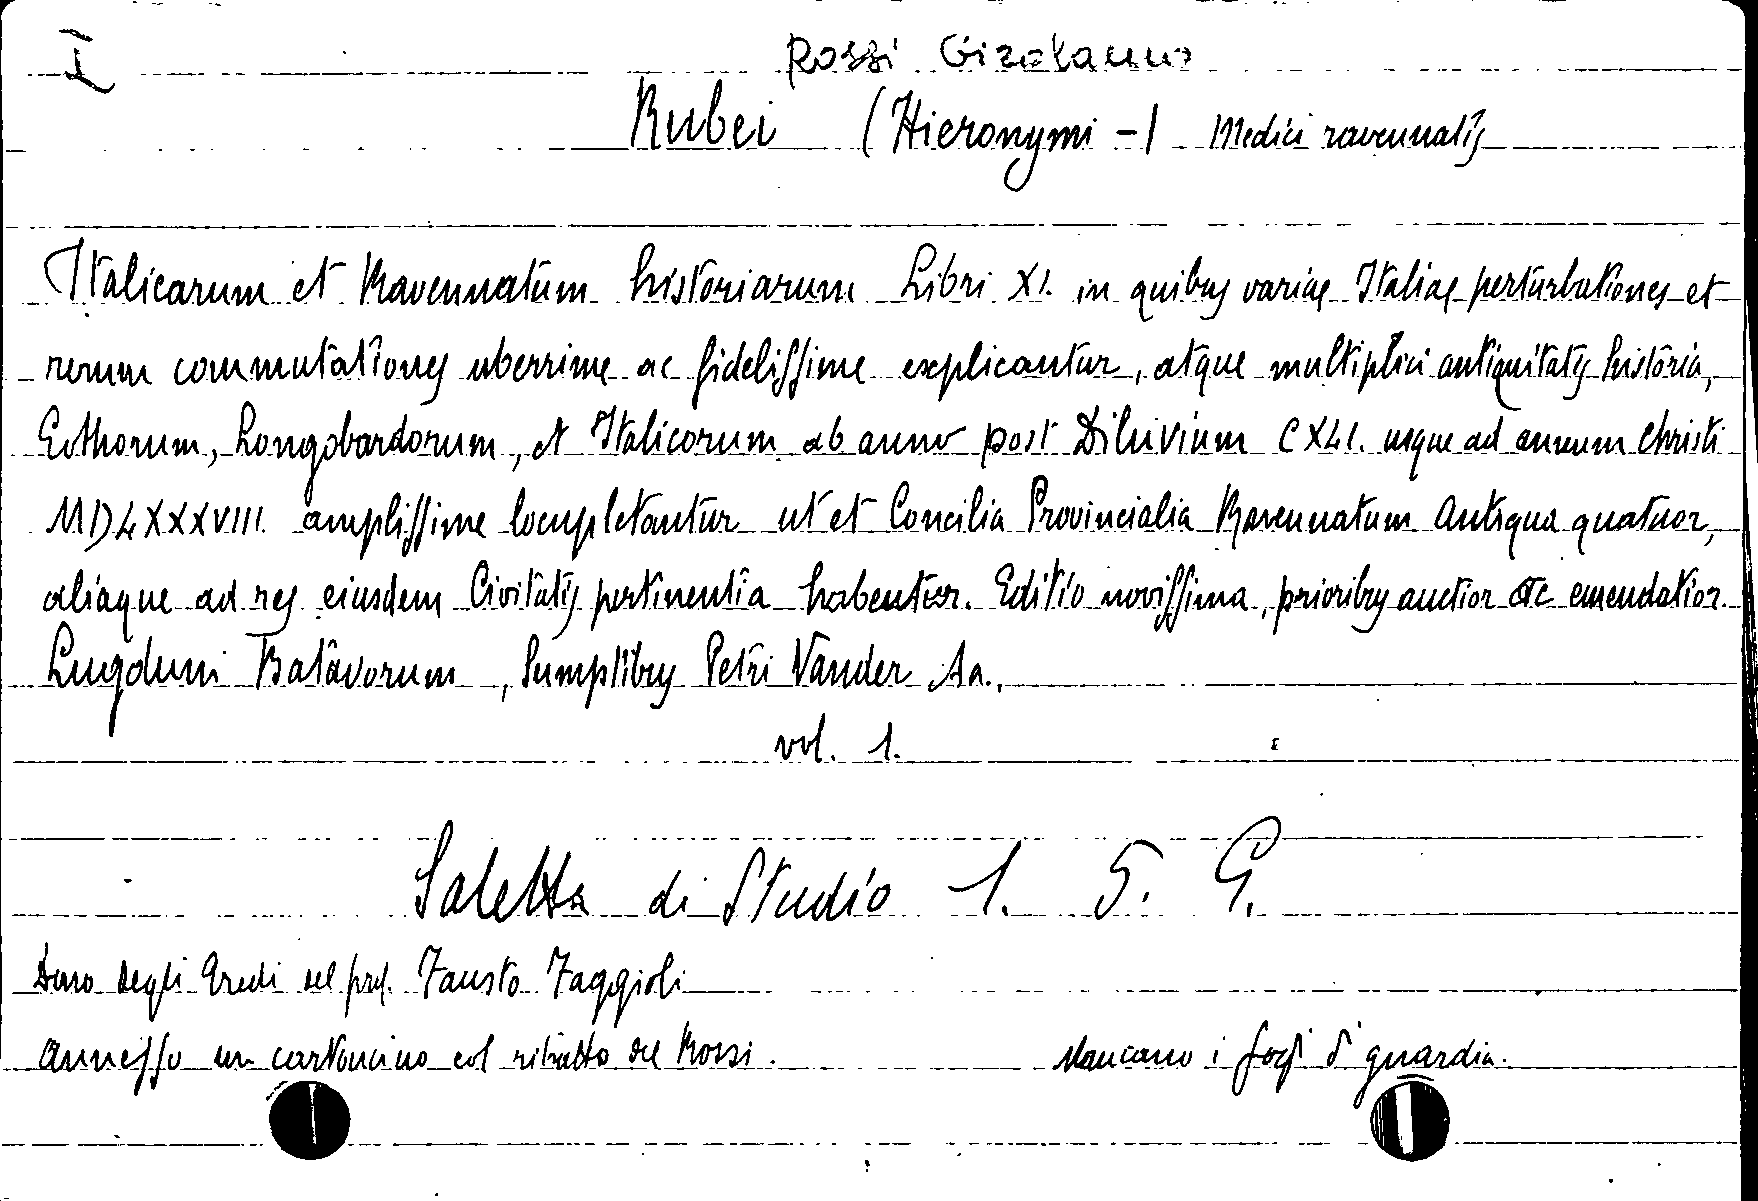 I
Rossi Girolamo
Rubei (Hieronymi -) Medici ravennatis
Italicarum et Ravennatum historiarum Libri XI. in quibus variae Italiae perturbationes et
rerum commutationes uberrime ac fidelissime explicantur, atque multiplici antiquitatis historia,
Gothorum, Longobardorum, et Italicorum ab anno post Diluvium CXLI. usque ad annum Christi
MDLXXXVIII. amplissime locupletantur ut et Concilia Provincialia Ravennatum Antiqua quatuor,
aliaque ad res eiusdem Civitatis pertinentia habentur. Editio novissima, prioribus auctior ac emendatior.
Lugduni Batavorum, Sumptibus Petri Vander Aa.,
vol. 1.
Saletta di Studio 1. 5. G.
Dono degli Eredi del prof. Fausto Faggioli
Annesso un cartoncino col ritratto del Rossi. Mancano i fogli di guardia.